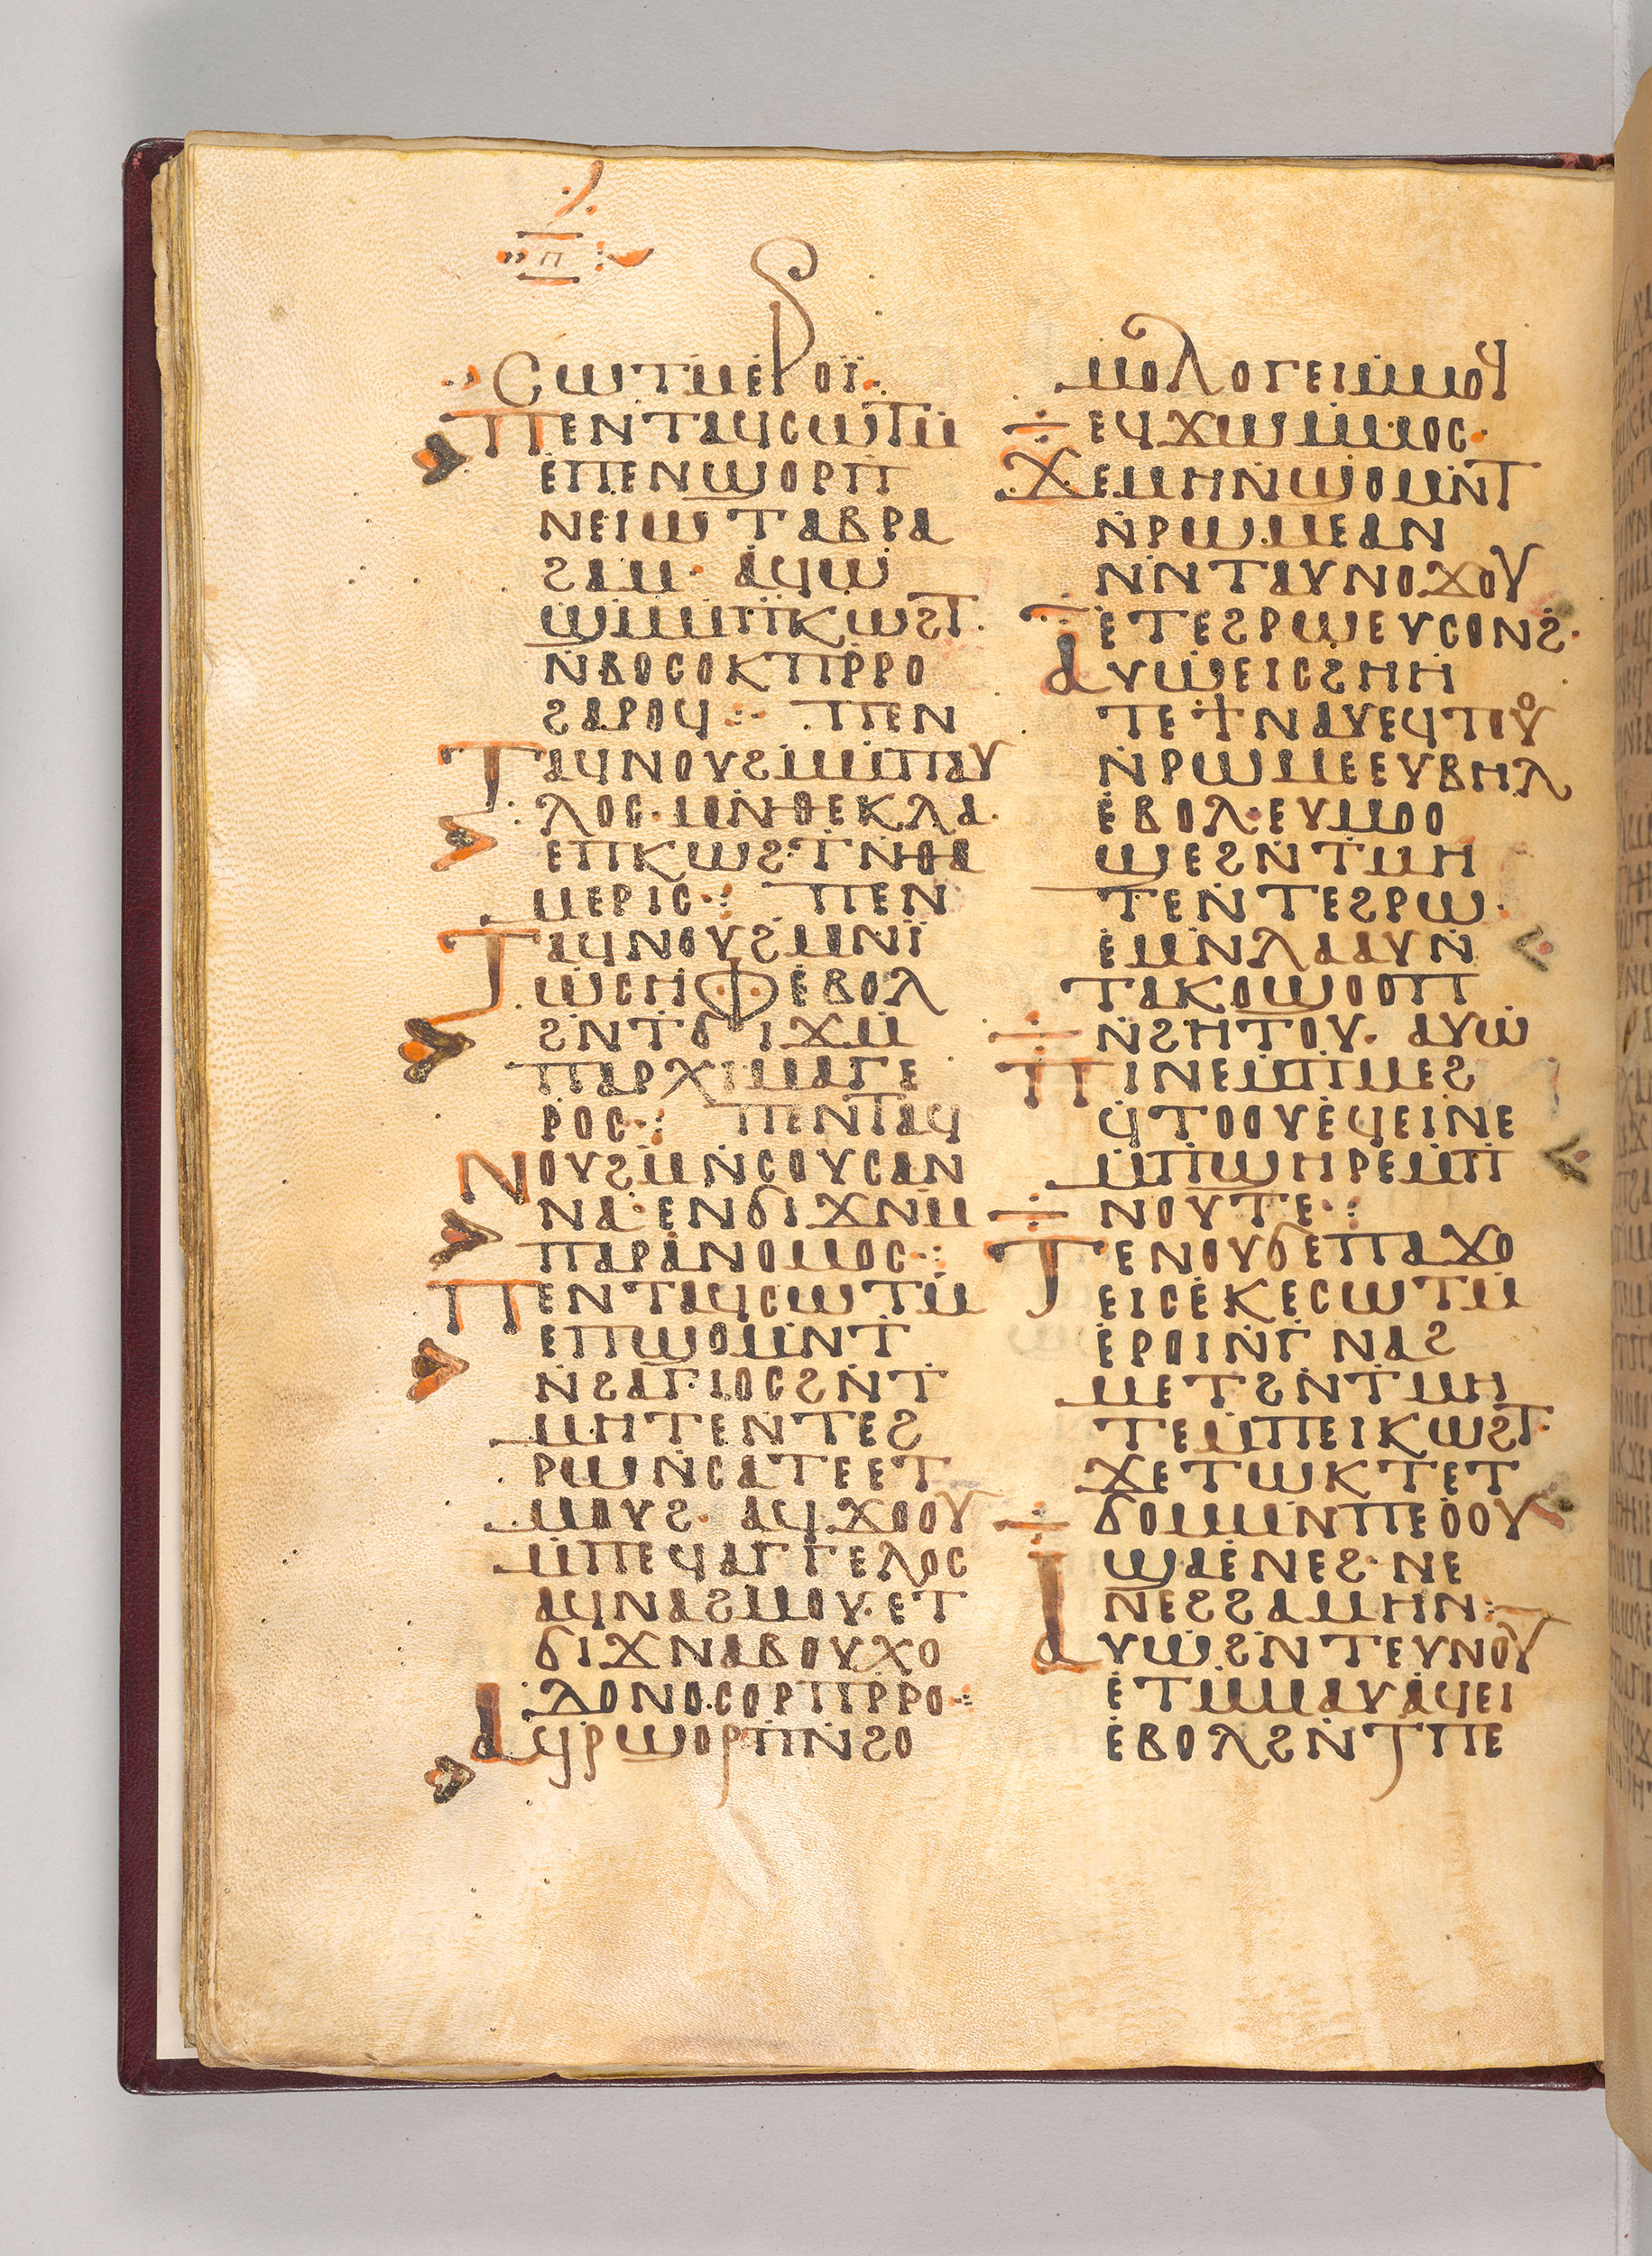 ⲡ
ⲥⲱⲧⲙⲉⲣⲟⲓ̈·
ⲡⲉⲛⲧⲁϥⲥⲱⲧⲙ
ⲉⲡⲉⲛϣⲟⲣⲡ
ⲛⲉⲓⲱⲧⲁⲃⲣⲁ
ϩⲁⲙ· ⲁϥⲱ
ϣⲙⲙⲡⲕⲱϩⲧ·
ⲛⲃⲟⲥⲟⲕⲡⲣⲣⲟ
ϩⲁⲣⲟϥ⁖ ⲡⲉⲛ
ⲧⲁϥⲛⲟⲩϩⲙⲙⲡⲁⲩ
ⲗⲟⲥ·ⲙⲛⲑⲉⲕⲗⲁ·
ⲉⲡⲕⲱϩⲧⲛⲑⲁ
ⲙⲉⲣⲓⲥ⁖ ⲡⲉⲛ
ⲧⲁϥⲛⲟⲩϩⲙⲛⲓ̈
ⲱⲥⲏⲫⲉⲃⲟⲗ
ϩⲛⲧϭⲓϫⲙ
ⲡⲁⲣⲭⲓⲙⲁⲅⲉ
ⲣⲟⲥ⁖ ⲡⲉⲛⲧⲁϥ
ⲛⲟⲩϩⲙⲛⲥⲟⲩⲥⲁⲛ
ⲛⲁ·ⲉⲛϭⲓϫⲛⲙ
ⲡⲁⲣⲁⲛⲟⲙⲟⲥ⁖
ⲡⲉⲛⲧⲁϥⲥⲱⲧⲙ
ⲉⲡϣⲟⲙⲛⲧ
ⲛϩⲁⲅⲓⲟⲥϩⲛⲧ
ⲙⲏⲧⲉⲛⲧⲉϩ
ⲣⲱⲛⲥⲁⲧⲉⲉⲧ
ⲙⲟⲩϩ· ⲁϥϫⲟⲟⲩ
ⲙⲡⲉϥⲁⲅⲅⲉⲗⲟⲥ
ⲁϥⲛⲁϩⲙⲟⲩ·ⲉⲧ
ϭⲓϫⲛⲁⲃⲟⲩⲭⲟ
ⲇⲟⲛⲟⲥⲟⲣⲡⲣⲣⲟ⁖
ⲁϥⲣϣⲟⲣⲡⲛϩⲟ
ⲙⲟⲗⲟⲅⲉⲓⲙⲙⲟϥ
ⲉϥϫⲱⲙⲙⲟⲥ·
ϫⲉⲙⲏⲛϣⲟⲙⲛⲧ
ⲛⲣⲱⲙⲉⲁⲛ
ⲛⲛⲧⲁⲩⲛⲟϫⲟⲩ
ⲧⲉⲧⲉϩⲣⲱⲉⲩⲥⲟⲛϩ·
ⲁⲩⲱⲉⲓⲥϩⲏⲏ
ⲧⲉϯⲛⲁⲩⲉϥⲧⲟⲩ
ⲛⲣⲱⲙⲉⲉⲩⲃⲏⲗ
ⲉⲃⲟⲗ·ⲉⲩⲙⲟⲟ
ϣⲉϩⲛⲧⲙⲏ
ⲧⲉⲛⲧⲉϩⲣⲱ·
ⲉⲙⲛⲗⲁⲁⲩⲛ
ⲧⲁⲕⲟϣⲟⲟⲡ
ⲛϩⲏⲧⲟⲩ· ⲁⲩⲱ
ⲡⲓⲛⲉⲙⲡⲙⲉϩ
ϥⲧⲟⲟⲩⲉϥⲉⲓⲛⲉ
ⲙⲡϣⲏⲣⲉⲙⲡ
ⲛⲟⲩⲧⲉ⁖
ⲧⲉⲛⲟⲩϭⲉⲡⲁϫⲟ
ⲉⲓⲥⲉⲕⲉⲥⲱⲧⲙ
ⲉⲣⲟⲓⲛⲅⲛⲁϩ
ⲙⲉⲧϩⲛⲧⲙⲏ
ⲧⲉⲙⲡⲉⲓⲕⲱϩⲧ·
ϫⲉⲧⲱⲕⲧⲉⲧ
ϭⲟⲙⲙⲛⲡⲉⲟⲟⲩ
ϣⲁⲉⲛⲉϩ·ⲛⲉ
ⲛⲉϩϩⲁⲙⲏⲛ⁖
ⲁⲩⲱϩⲛⲧⲉⲩⲛⲟⲩ
ⲉⲧⲙⲙⲁⲩⲁϥⲉⲓ
ⲉⲃⲟⲗϩⲛⲧⲡⲉ